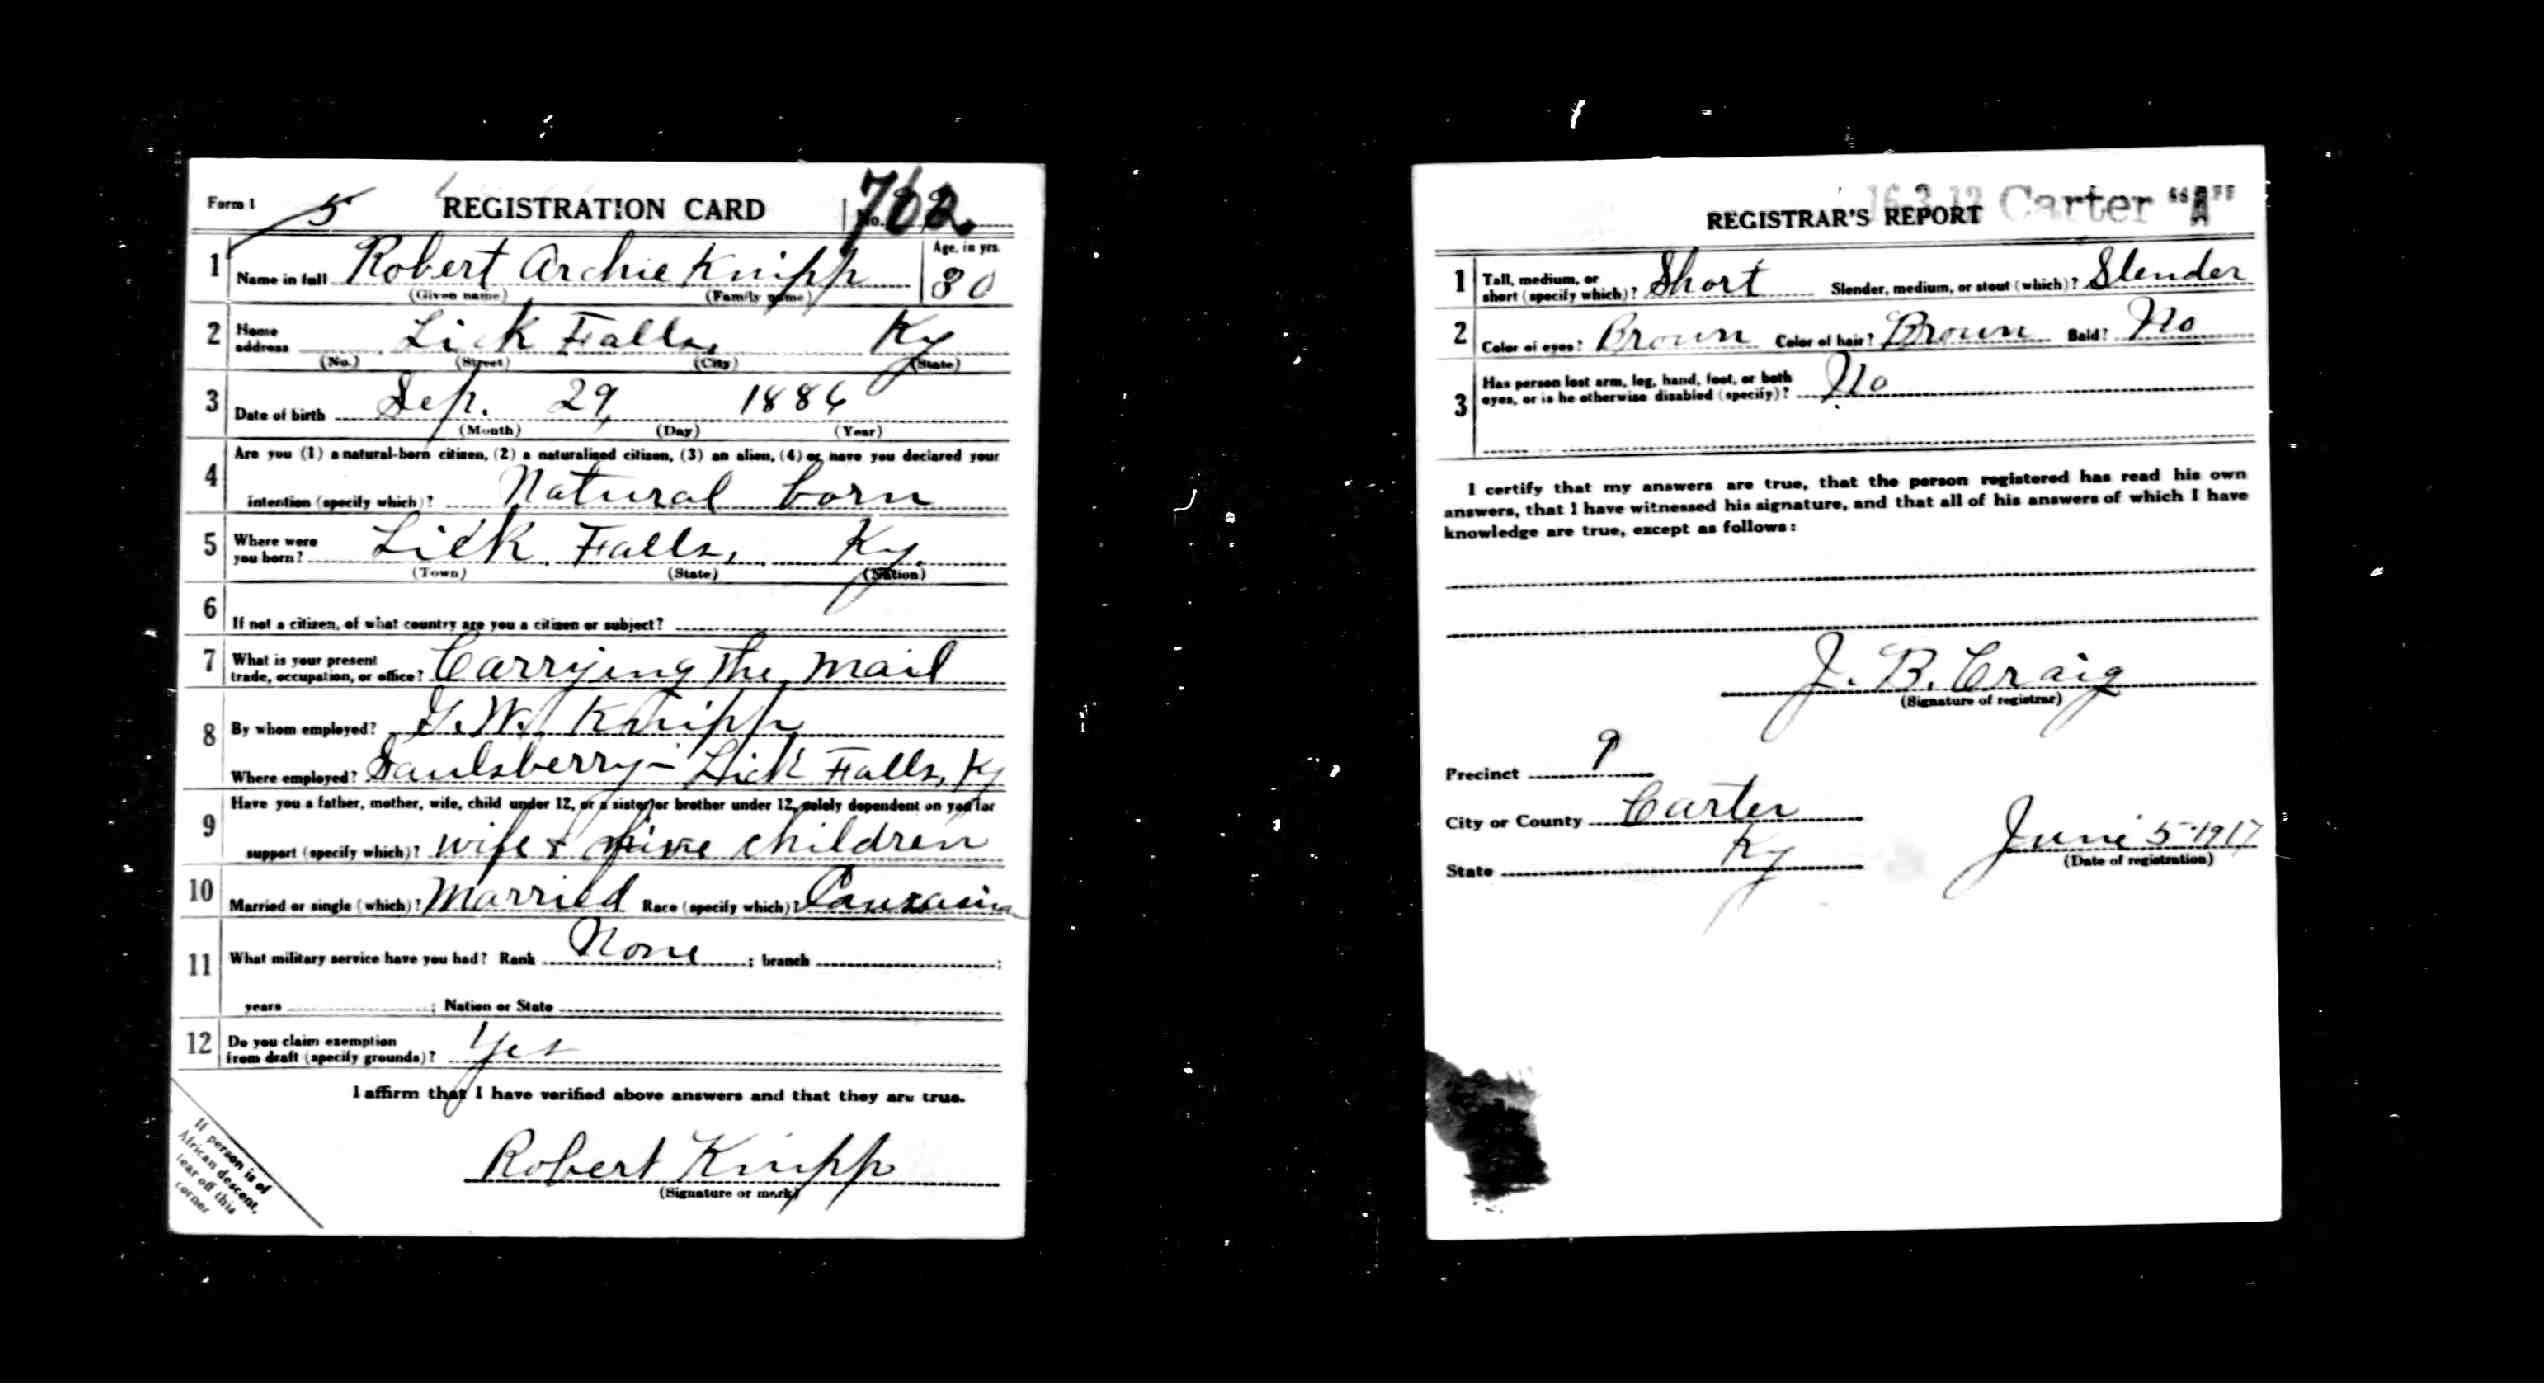 Form 1 5 REGISTRATION CARD No. 762
1 Name in full Robert Archie Knipp Age, in yrs. 30
(Given name) (Family name)
2 Home address Lick Falls, Ky
(No.) (Street) (City) (State)
3 Date of birth Sep. 29, 1886
(Month) (Day) (Year)
4 Are you (1) a natural-born citizen, (2) a naturalized citizen, (3) an alien, (4) or have you declared your
intention (specify which)? Natural born
5 Where were you born? Lick Falls, Ky.
(Town) (State) (Nation)
6 If not a citizen, of what country are you a citizen or subject?
7 What is your present trade, occupation, or office? Carrying The Mail
8 By whom employed? G. W. Knipp
Where employed? Saulsberry - Lick Falls, Ky
9 Have you a father, mother, wife, child under 12, or a sister or brother under 12, solely dependent on you for
support (specify which)? wife & five children
10 Married or single (which)? Married Race (specify which)? Caucasian
11 What military service have you had? Rank None ; branch ;
years ; Nation or State
12 Do you claim exemption from draft (specify grounds)? Yes
I affirm that I have verified above answers and that they are true.
Robert Knipp
(Signature or mark)
If person is of
African descent,
tear off this
corner
16-3-12 Carter "A"
REGISTRAR'S REPORT
1 Tall, medium, or short (specify which)? Short Slender, medium, or stout (which)? Slender
2 Color of eyes? Brown Color of hair? Brown Bald? No
3 Has person lost arm, leg, hand, foot, or both
eyes, or is he otherwise disabled (specify)? No
I certify that my answers are true, that the person registered has read his own
answers, that I have witnessed his signature, and that all of his answers of which I have
knowledge are true, except as follows:
J. B. Craig
(Signature of registrar)
Precinct 9
City or County Carter
State Ky June 5-1917
(Date of registration)